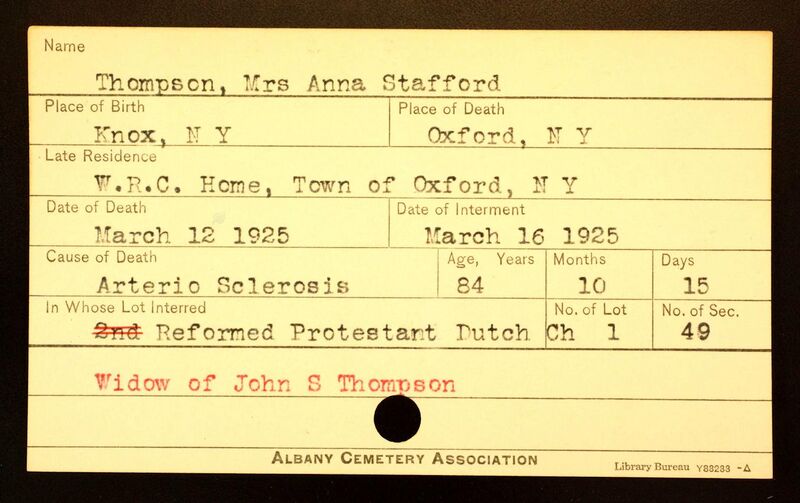 Name
Thompson, Mrs Anna Stafford
Place of Birth Place of Death
Knox, N Y Oxford, N Y
Late Residence
W.R.C. Home, Town of Oxford, N Y
Date of Death Date of Interment
March 12 1925 March 16 1925
Cause of Death Age, Years Months Days
Arterio Sclerosis 84 10 15
In Whose Lot Interred No. of Lot No. of Sec.
2nd Reformed Protestant Dutch Ch 1 49
Widow of John S Thompson
ALBANY CEMETERY ASSOCIATION
Library Bureau Y88233 -Δ